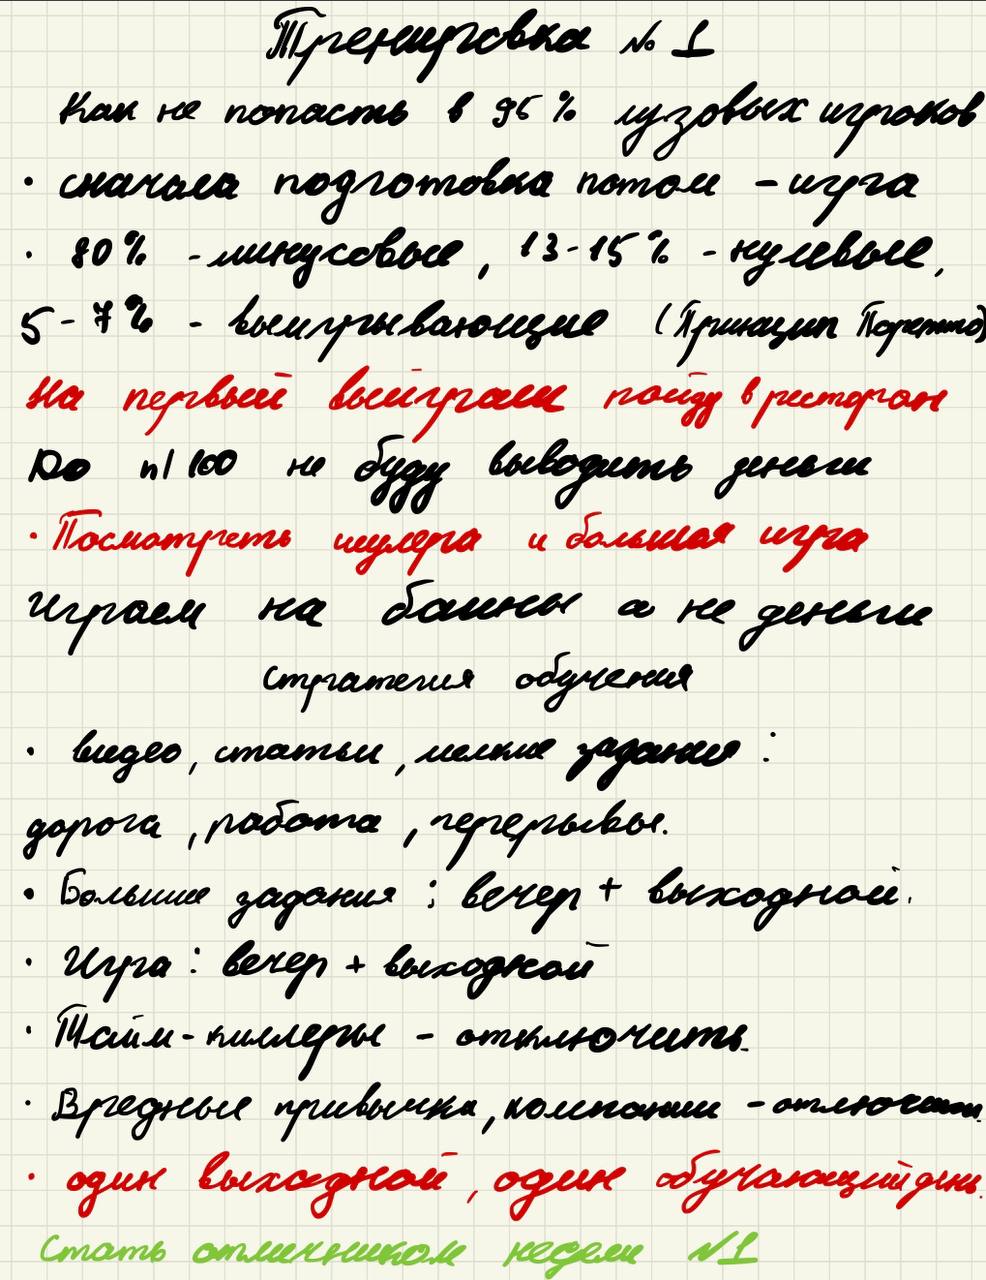 Тренировка № 1
Как не попасть в 95% лузовых игроков
· сначала подготовка потом - игра
· 80% - минусовые, 13-15% - нулевые,
5-7% - выигрывающие (Принцип Парето)
На первый выиграш пойду в ресторан
До nl 100 не буду выводить деньги
· Посмотреть шулера и большая игра
Играем на баины а не деньги
стратегия обучения
· видео, статьи, мелкие задания :
дорога, работа, перерывы.
· Большие задания : вечер + выходной.
· Игра : вечер + выходной
· Тайм-киллеры - отключить.
· Вредные привычки, компании - отключить.
· один выходной, один обучающий день.
Стать отличником недели №1